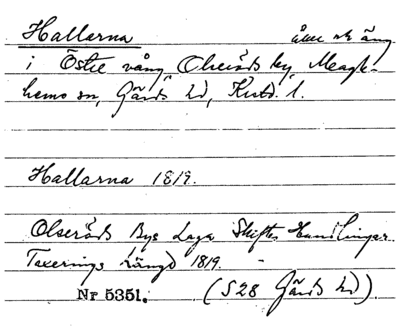 Hallarna åker och äng
i Östre vång, Olseröds by, Maglehems sn, Gärds hd, Krist. l.
Hallarna 1819.
Olseröds Bys Laga Skiftes Handlingar
Taxerings Längd 1819. -
Nr 5351. (S 28 Gärds hd).